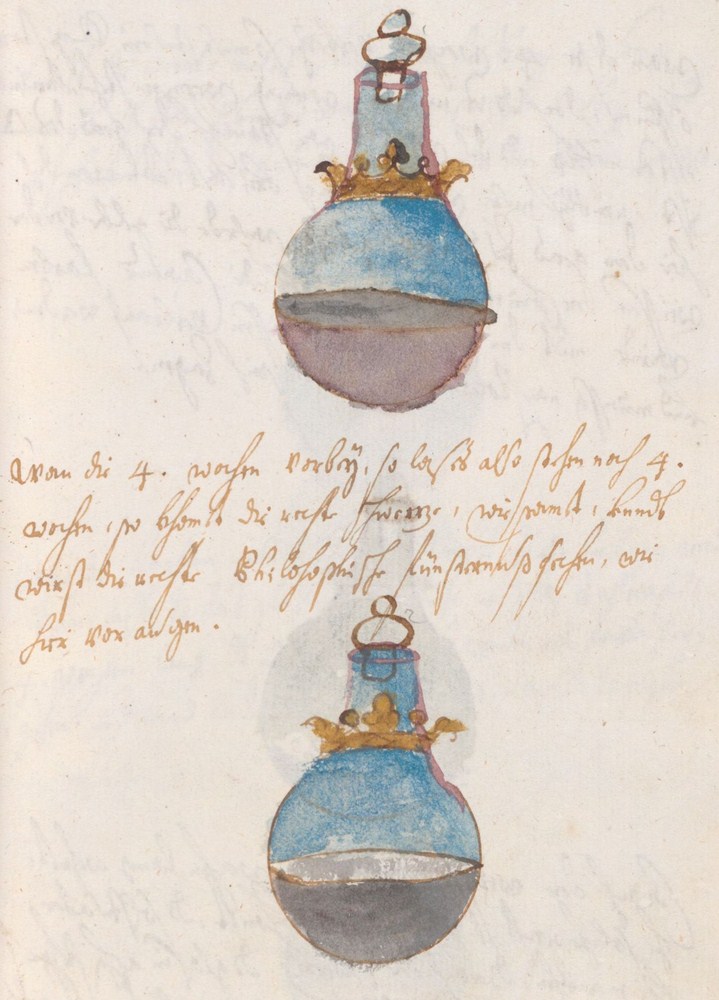 Wan die 4. wochen vorbey, so lass es also stehen noch 4.
wochen, so khombt die rechte schwarze, wie sambt, undt
wirst die rechte Philosophische künsternuß sehen, wie
hier vor augen.